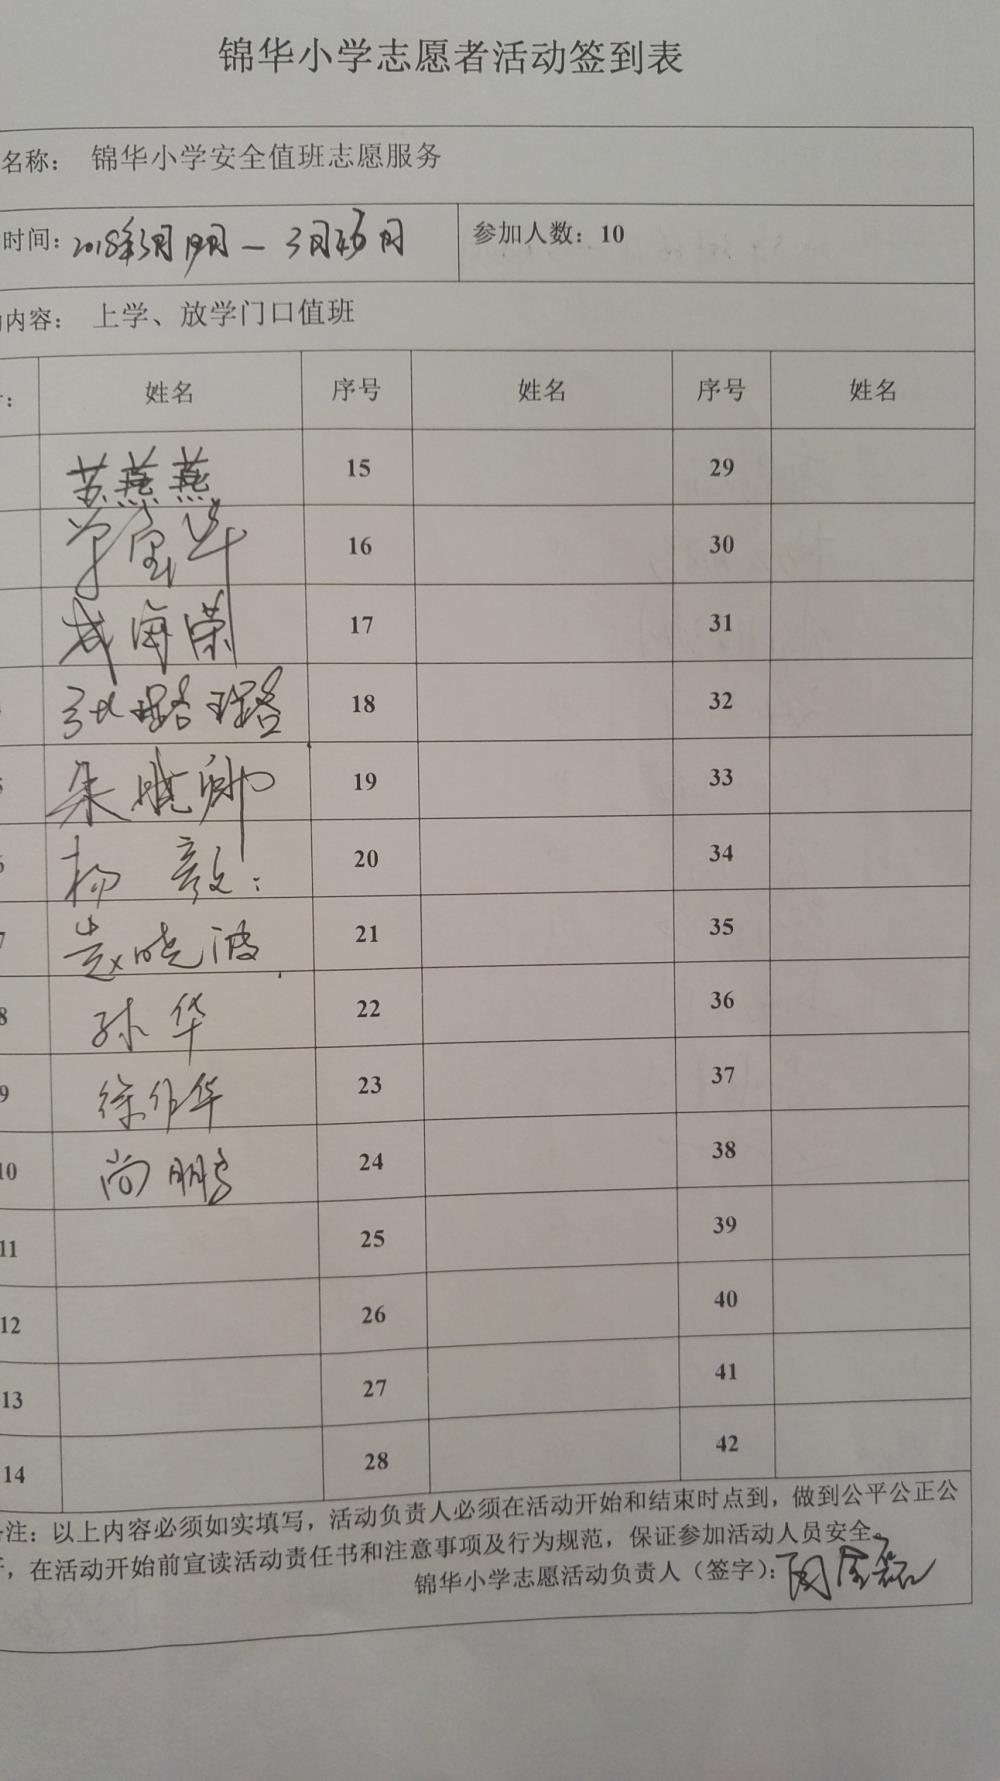 锦华小学志愿者活动签到表
名称： 锦华小学安全值班志愿服务
时间: 2018年3月 — 3月 参加人数：10
内容： 上学、放学门口值班
姓名 序号 姓名 序号 姓名
苏燕燕 15 29
16 30
海荣 17 31
张璐璐 18 32
朱晓卿 19 33
6 杨毅 20 34
7 赵晓波 21 35
8 孙华 22 36
9 徐作华 23 37
10 尚鹏 24 38
11 25 39
12 26 40
13 27 41
14 28 42
注：以上内容必须如实填写，活动负责人必须在活动开始和结束时点到，做到公平公正公
，在活动开始前宣读活动责任书和注意事项及行为规范，保证参加活动人员安全。
锦华小学志愿活动负责人（签字）：